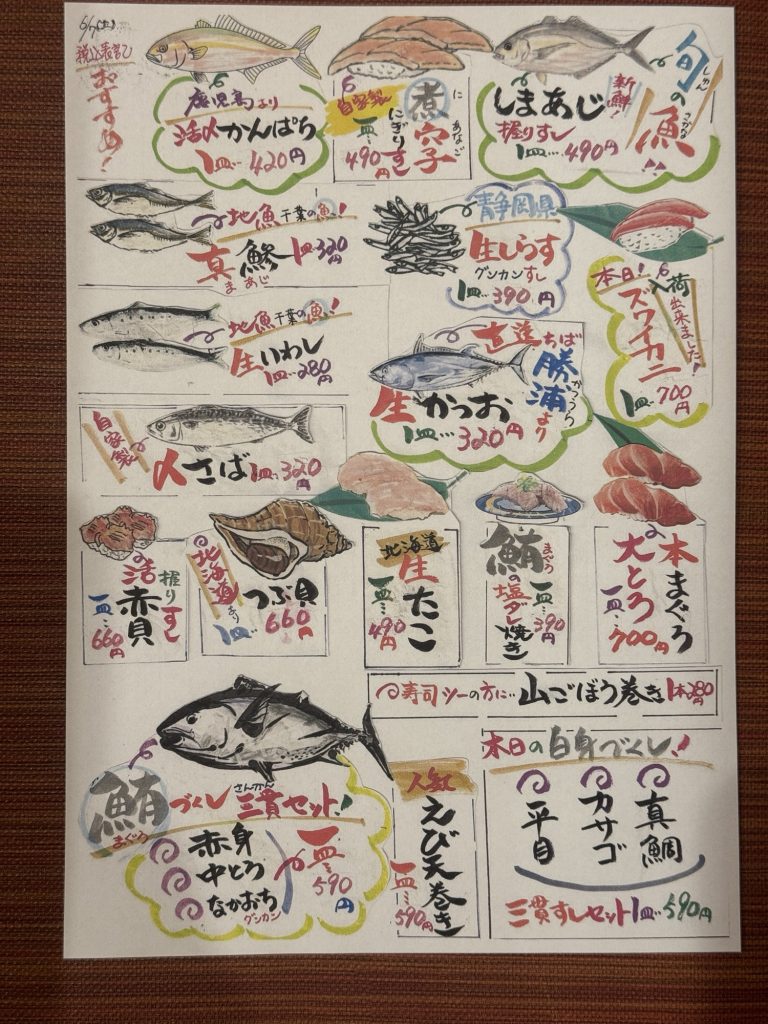 6/7(土)
税込表記
おすすめ!
鹿児島より
活〆かんぱち
1皿…420円
自家製
煮穴子
に あなご
にぎりすし
一皿…490円
しまあじ
新鮮!
握りすし
1皿…490円
旬の魚!!
しゅん
さかな
地魚千葉の魚!
真鯵 1皿320円
まあじ
静岡県
生しらす
グンカンすし
1皿…390円
本日!入荷出来ました!
ズワイカニ
1皿…700円
地魚千葉の魚!
生いわし
1皿…280円
ちば
勝浦より
かつうら
生かつお
1皿…320円
自家製
〆さば 1皿…320円
活赤貝
握りすし
一皿…660円
北海道より
つぶ貝
1皿…660円
北海道
生たこ
一皿…490円
鮪の塩ダレ焼き
まぐろ
一皿…390円
本まぐろ
大とろ
一皿…700円
寿司ツーの方に…山ごぼう巻き 1本280円
鮪づくし三貫セット!
まぐろ
さんかん
赤身
中とろ
なかおち
グンカン
一皿…590円
人気
えび天巻き
一皿…590円
本日の白身づくし!
真鯛
カサゴ
平目
三貫すしセット1皿…590円